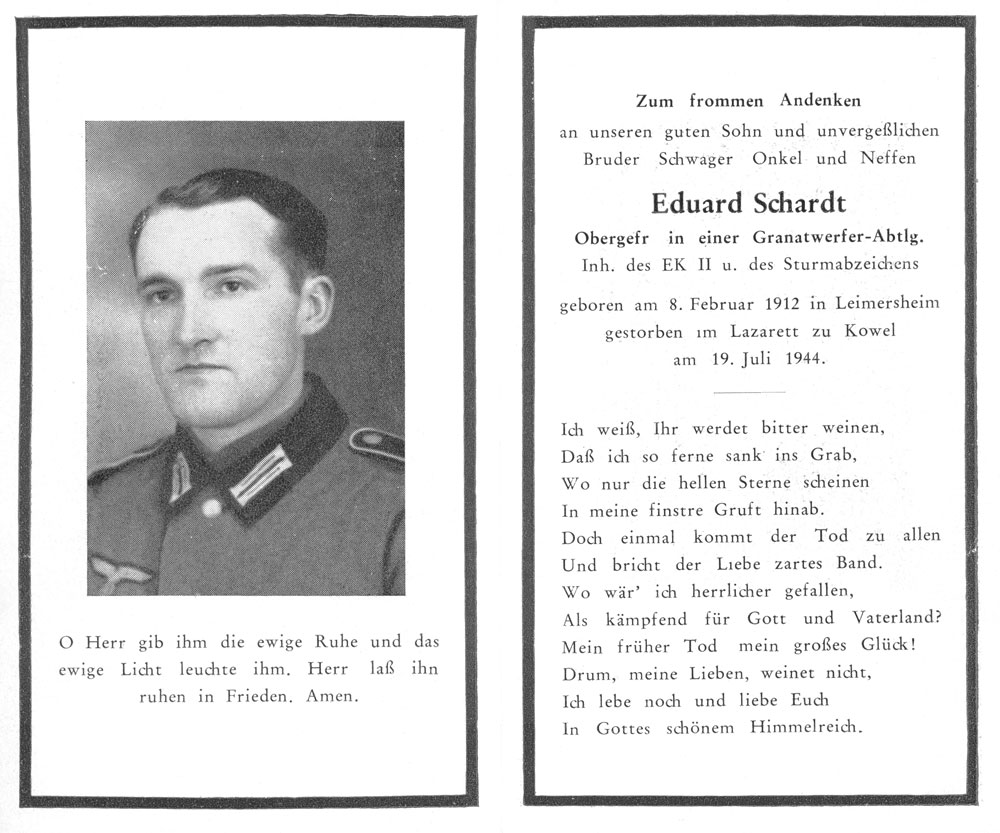 O Herr gib ihm die ewige Ruhe und das
ewige Licht leuchte ihm. Herr laß ihn
ruhen in Frieden. Amen.
Zum frommen Andenken
an unseren guten Sohn und unvergeßlichen
Bruder Schwager Onkel und Neffen
Eduard Schardt
Obergefr in einer Granatwerfer-Abtlg.
Inh. des EK II u. des Sturmabzeichens
geboren am 8. Februar 1912 in Leimersheim
gestorben im Lazarett zu Kowel
am 19. Juli 1944.
Ich weiß, Ihr werdet bitter weinen,
Daß ich so ferne sank ins Grab,
Wo nur die hellen Sterne scheinen
In meine finstre Gruft hinab.
Doch einmal kommt der Tod zu allen
Und bricht der Liebe zartes Band.
Wo wär' ich herrlicher gefallen,
Als kämpfend für Gott und Vaterland?
Mein früher Tod mein großes Glück!
Drum, meine Lieben, weinet nicht,
Ich lebe noch und liebe Euch
In Gottes schönem Himmelreich.